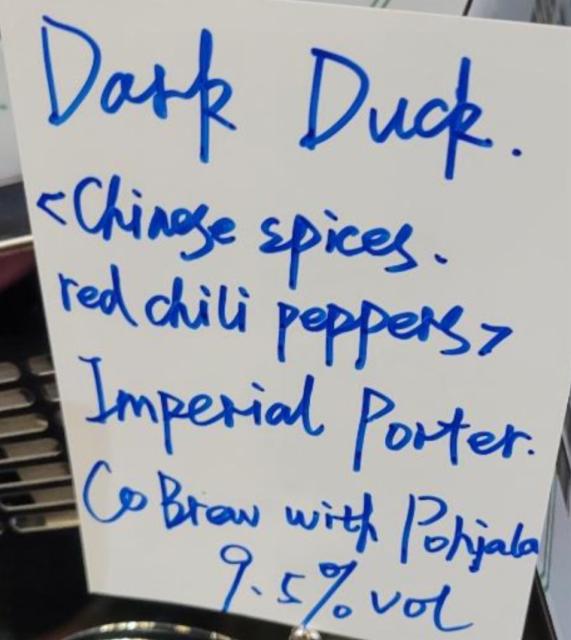 Dark Duck.
<Chinese spices.
red chili peppers>
Imperial Porter.
Co Brew with Pohjala
9.5% vol